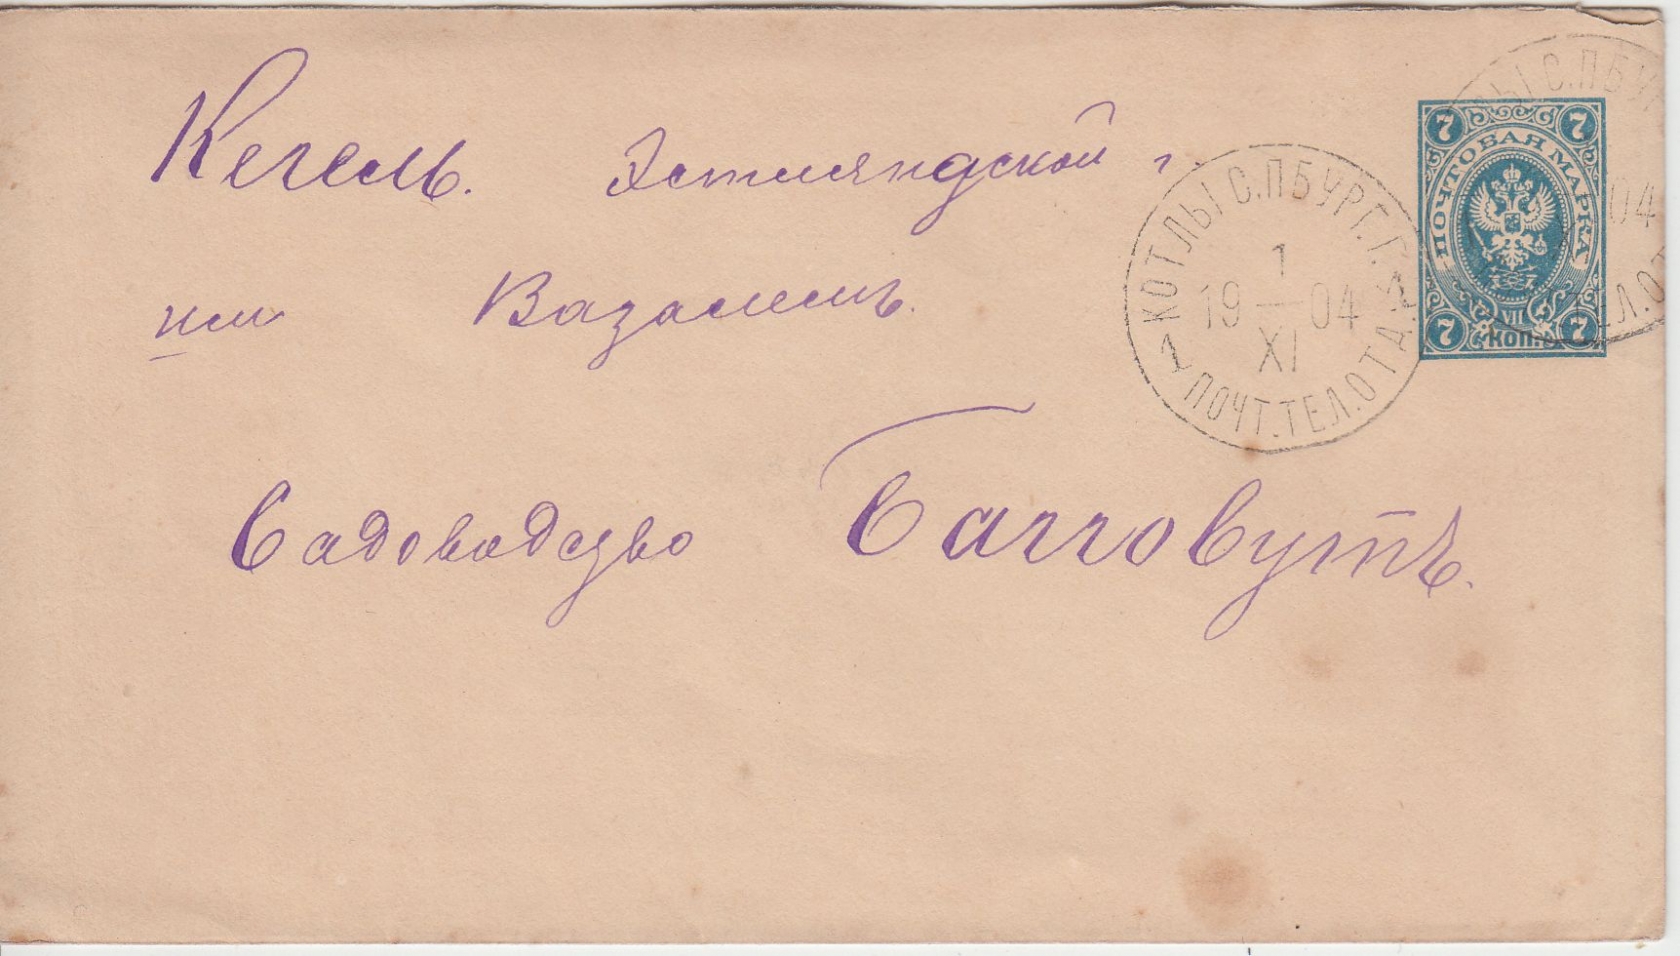 Кегель. Эстляндской г.
или Вазалемъ.
Садоводство Багговутъ.
КОТЛЫ С.ПБУРГ. Г.
1
19 — 04
XI
1 ПОЧТ.ТЕЛ.ОТД.
7 7
ПОЧТОВАЯ МАРКА
VII
7 КОП. 7
ЛЫ С.ПБУР
04
ТЕЛ.ОТ